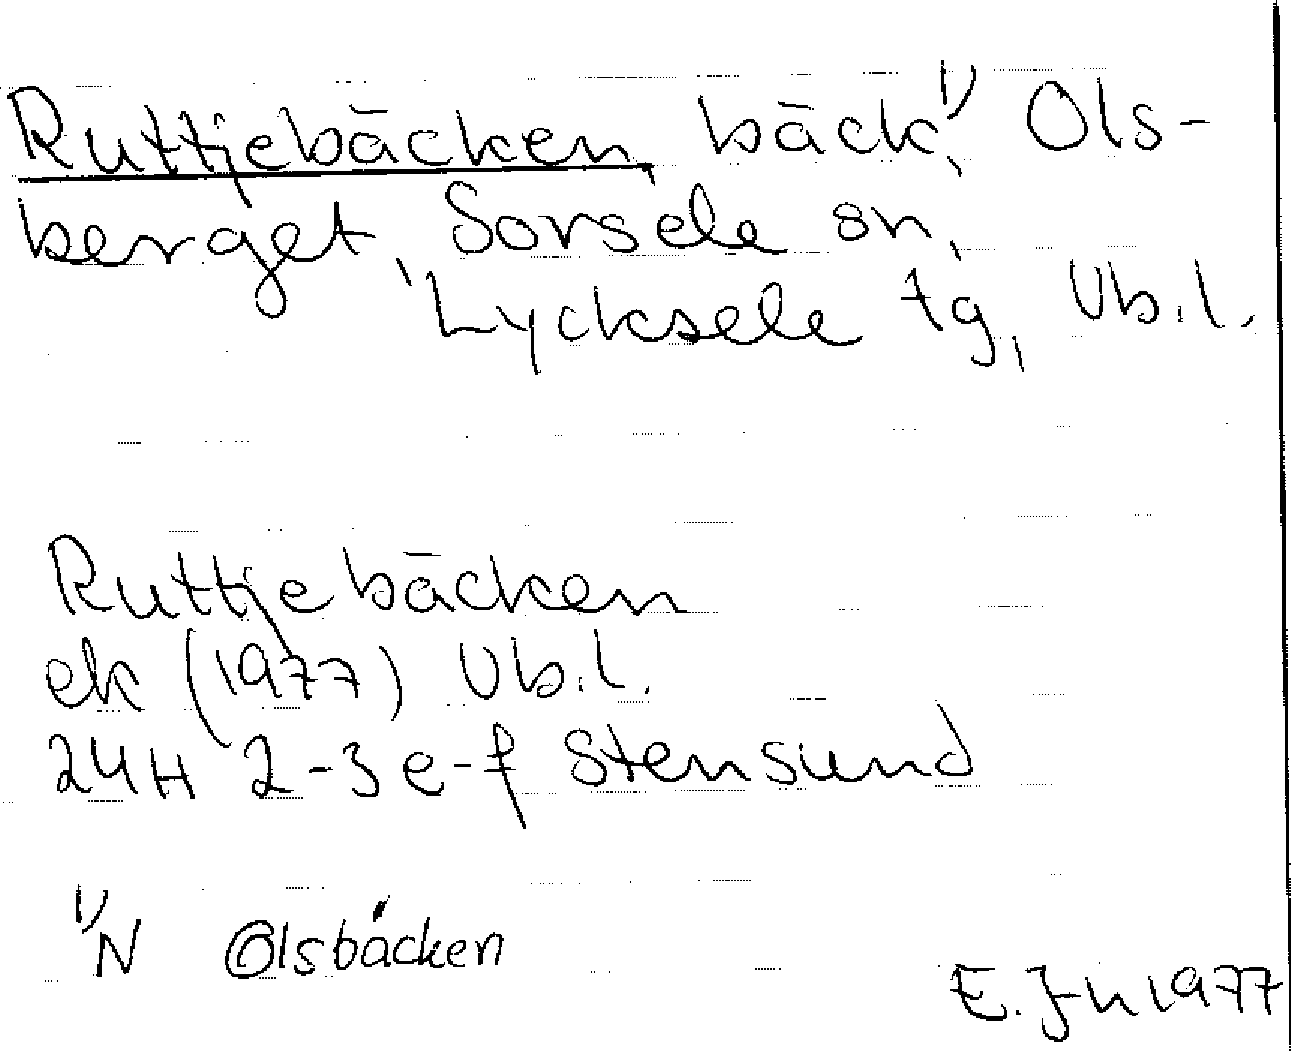 Ruttjebäcken, bäck¹⁾, Ols-
berget, Sorsele sn,
Lycksele tg, Vb.l.
Ruttjebäcken
ek (1977) Vb.l.
24H 2-3 e-f Stensund
¹⁾N Olsbäcken
E. Jn 1977